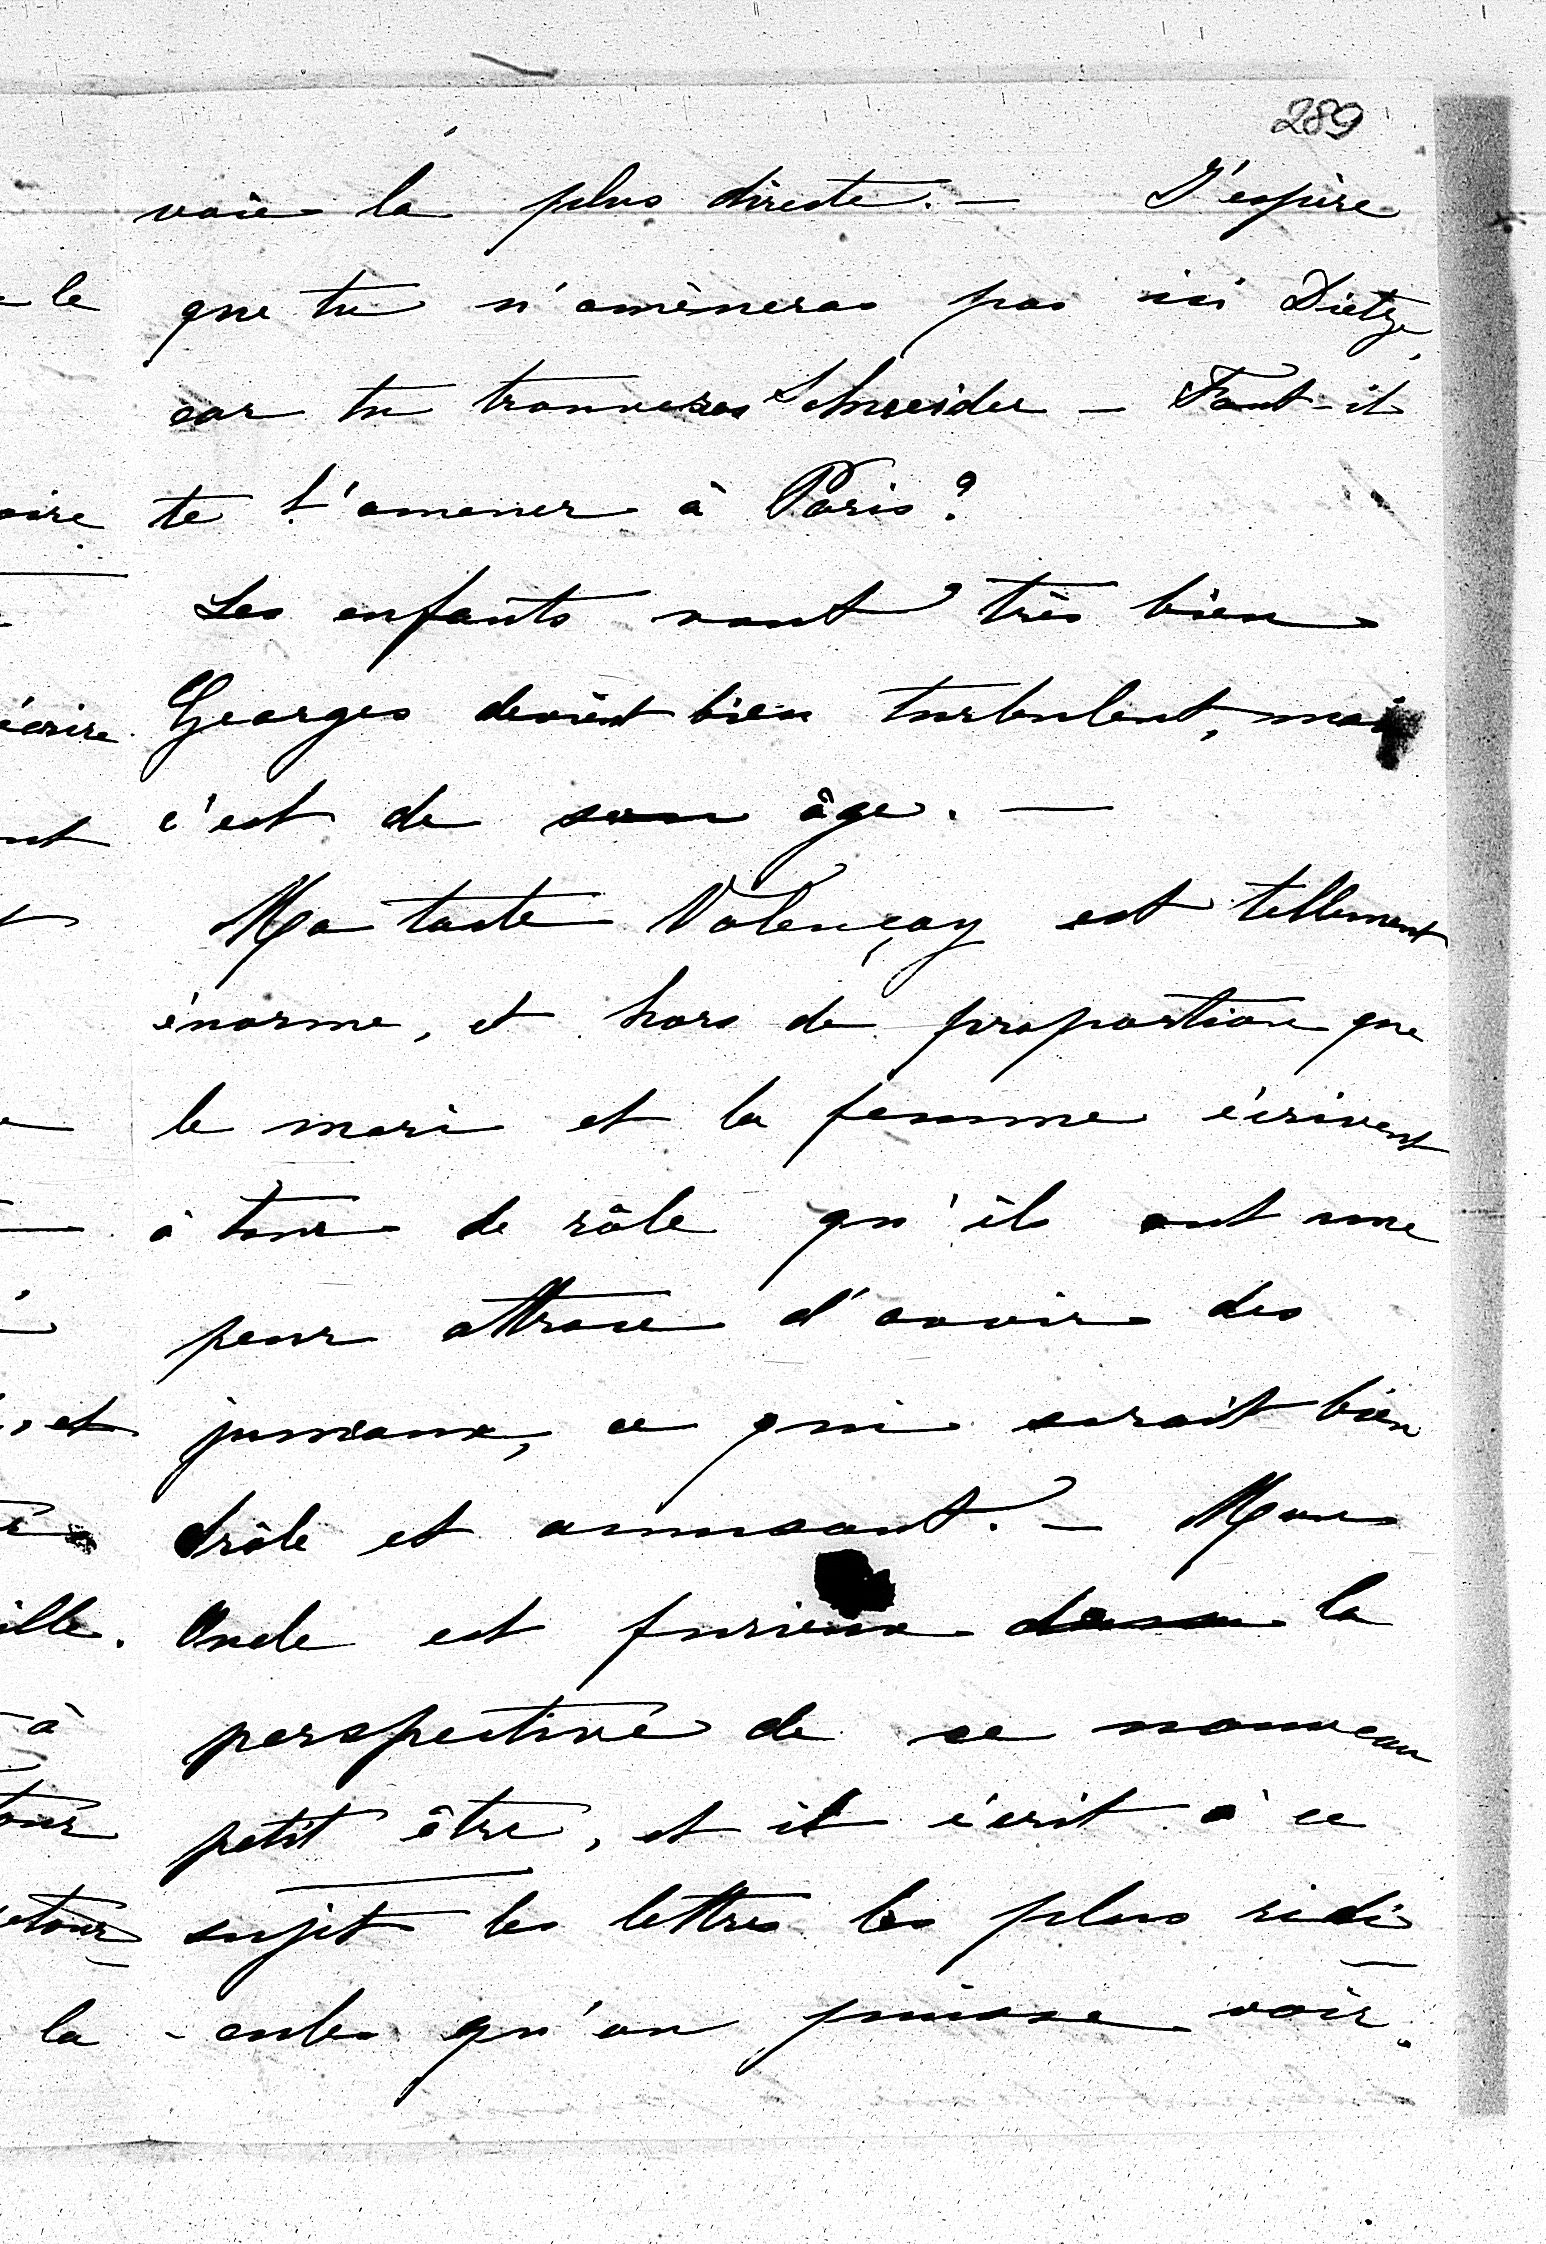 289
voie la plus directe. — J'espère
que tu n'amèneras pas ici Dietze,
car tu trouveras Schneider — Faut-il
te l'amener à Paris ?
Les enfants vont très bien
Georges devient bien turbulent, mais
c'est de son âge. —
Ma tante Valençay est tellement
énorme, et hors de proportion que
le mari et la femme écrivent
à tour de rôle qu'ils ont une
peur atroce d'avoir des
jumeaux, ce qui serait bien
drôle et amusant. — Mon
Oncle est furieux dans la
perspective de ce nouveau
petit être, et il écrit à ce
sujet les lettres les plus ridi
- cules qu'on puisse voir.